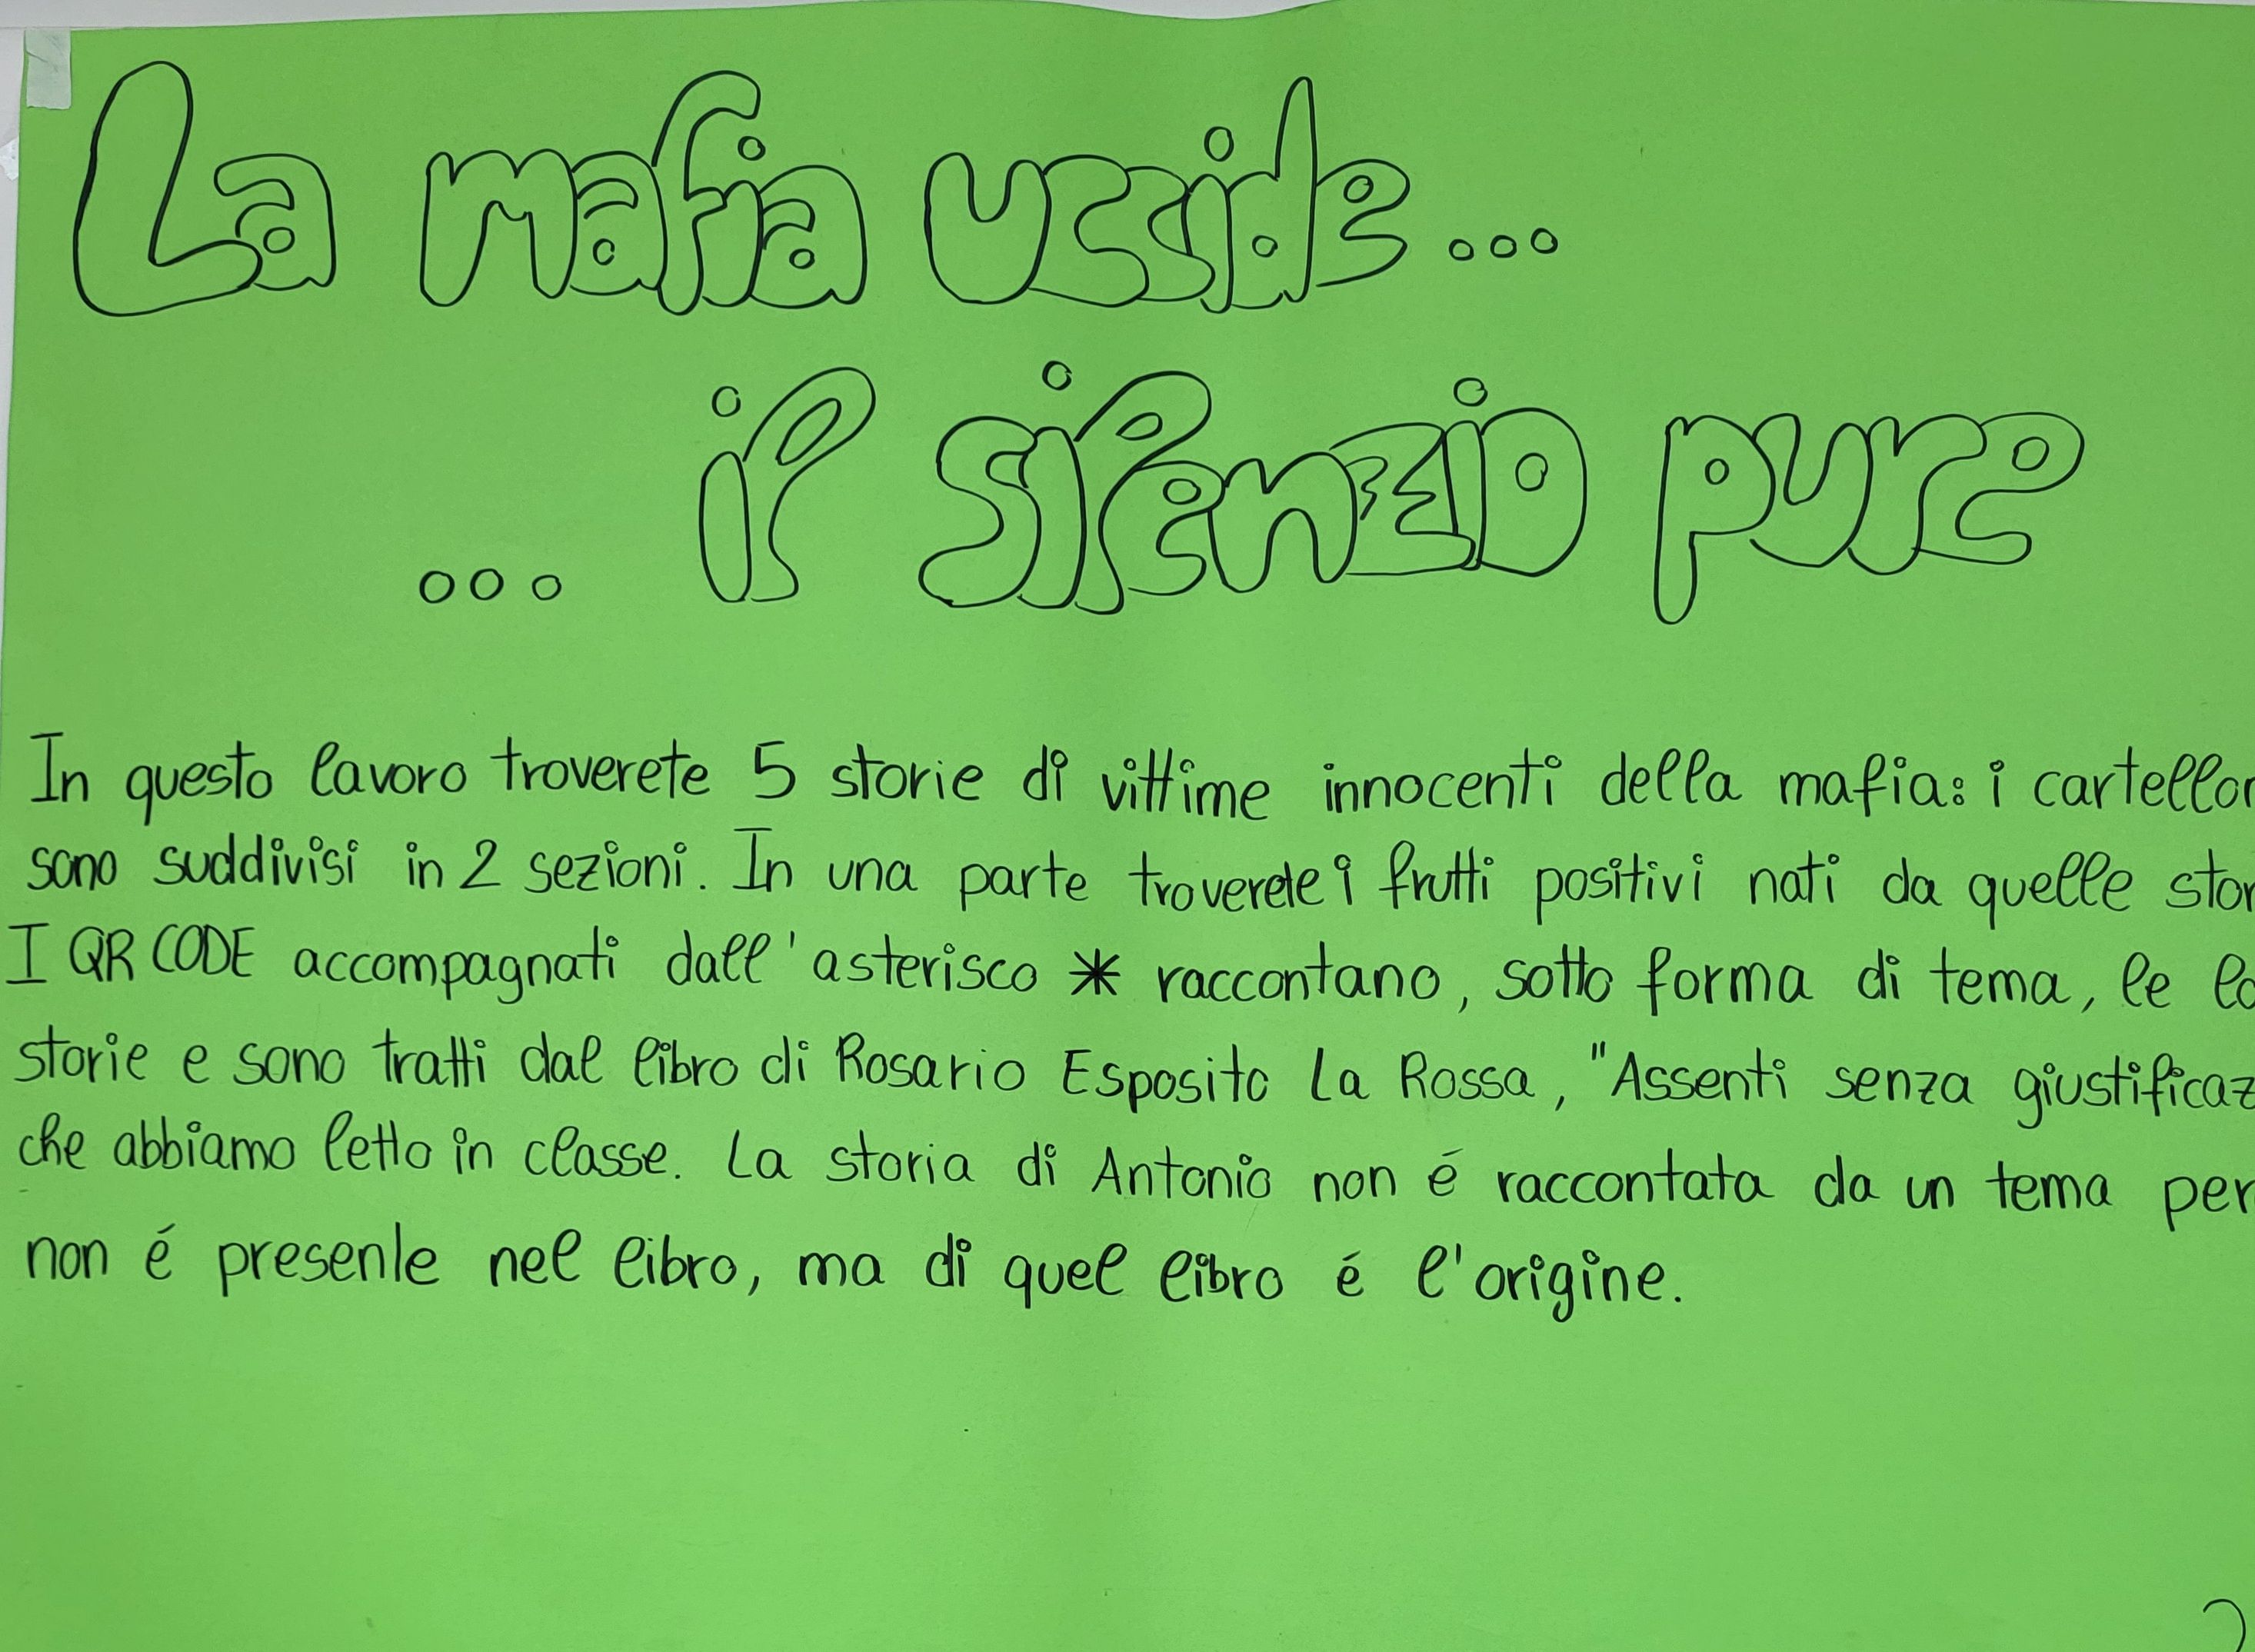 La mafia uccide...
... il silenzio pure
In questo lavoro troverete 5 storie di vittime innocenti della mafia: i cartellon
sono suddivisi in 2 sezioni. In una parte troverete i frutti positivi nati da quelle stor
I QR CODE accompagnati dall'asterisco * raccontano, sotto forma di tema, le lo
storie e sono tratti dal libro di Rosario Esposito La Rossa, "Assenti senza giustificaz
che abbiamo letto in classe. La storia di Antonio non é raccontata da un tema per
non é presente nel libro, ma di quel libro é l'origine.